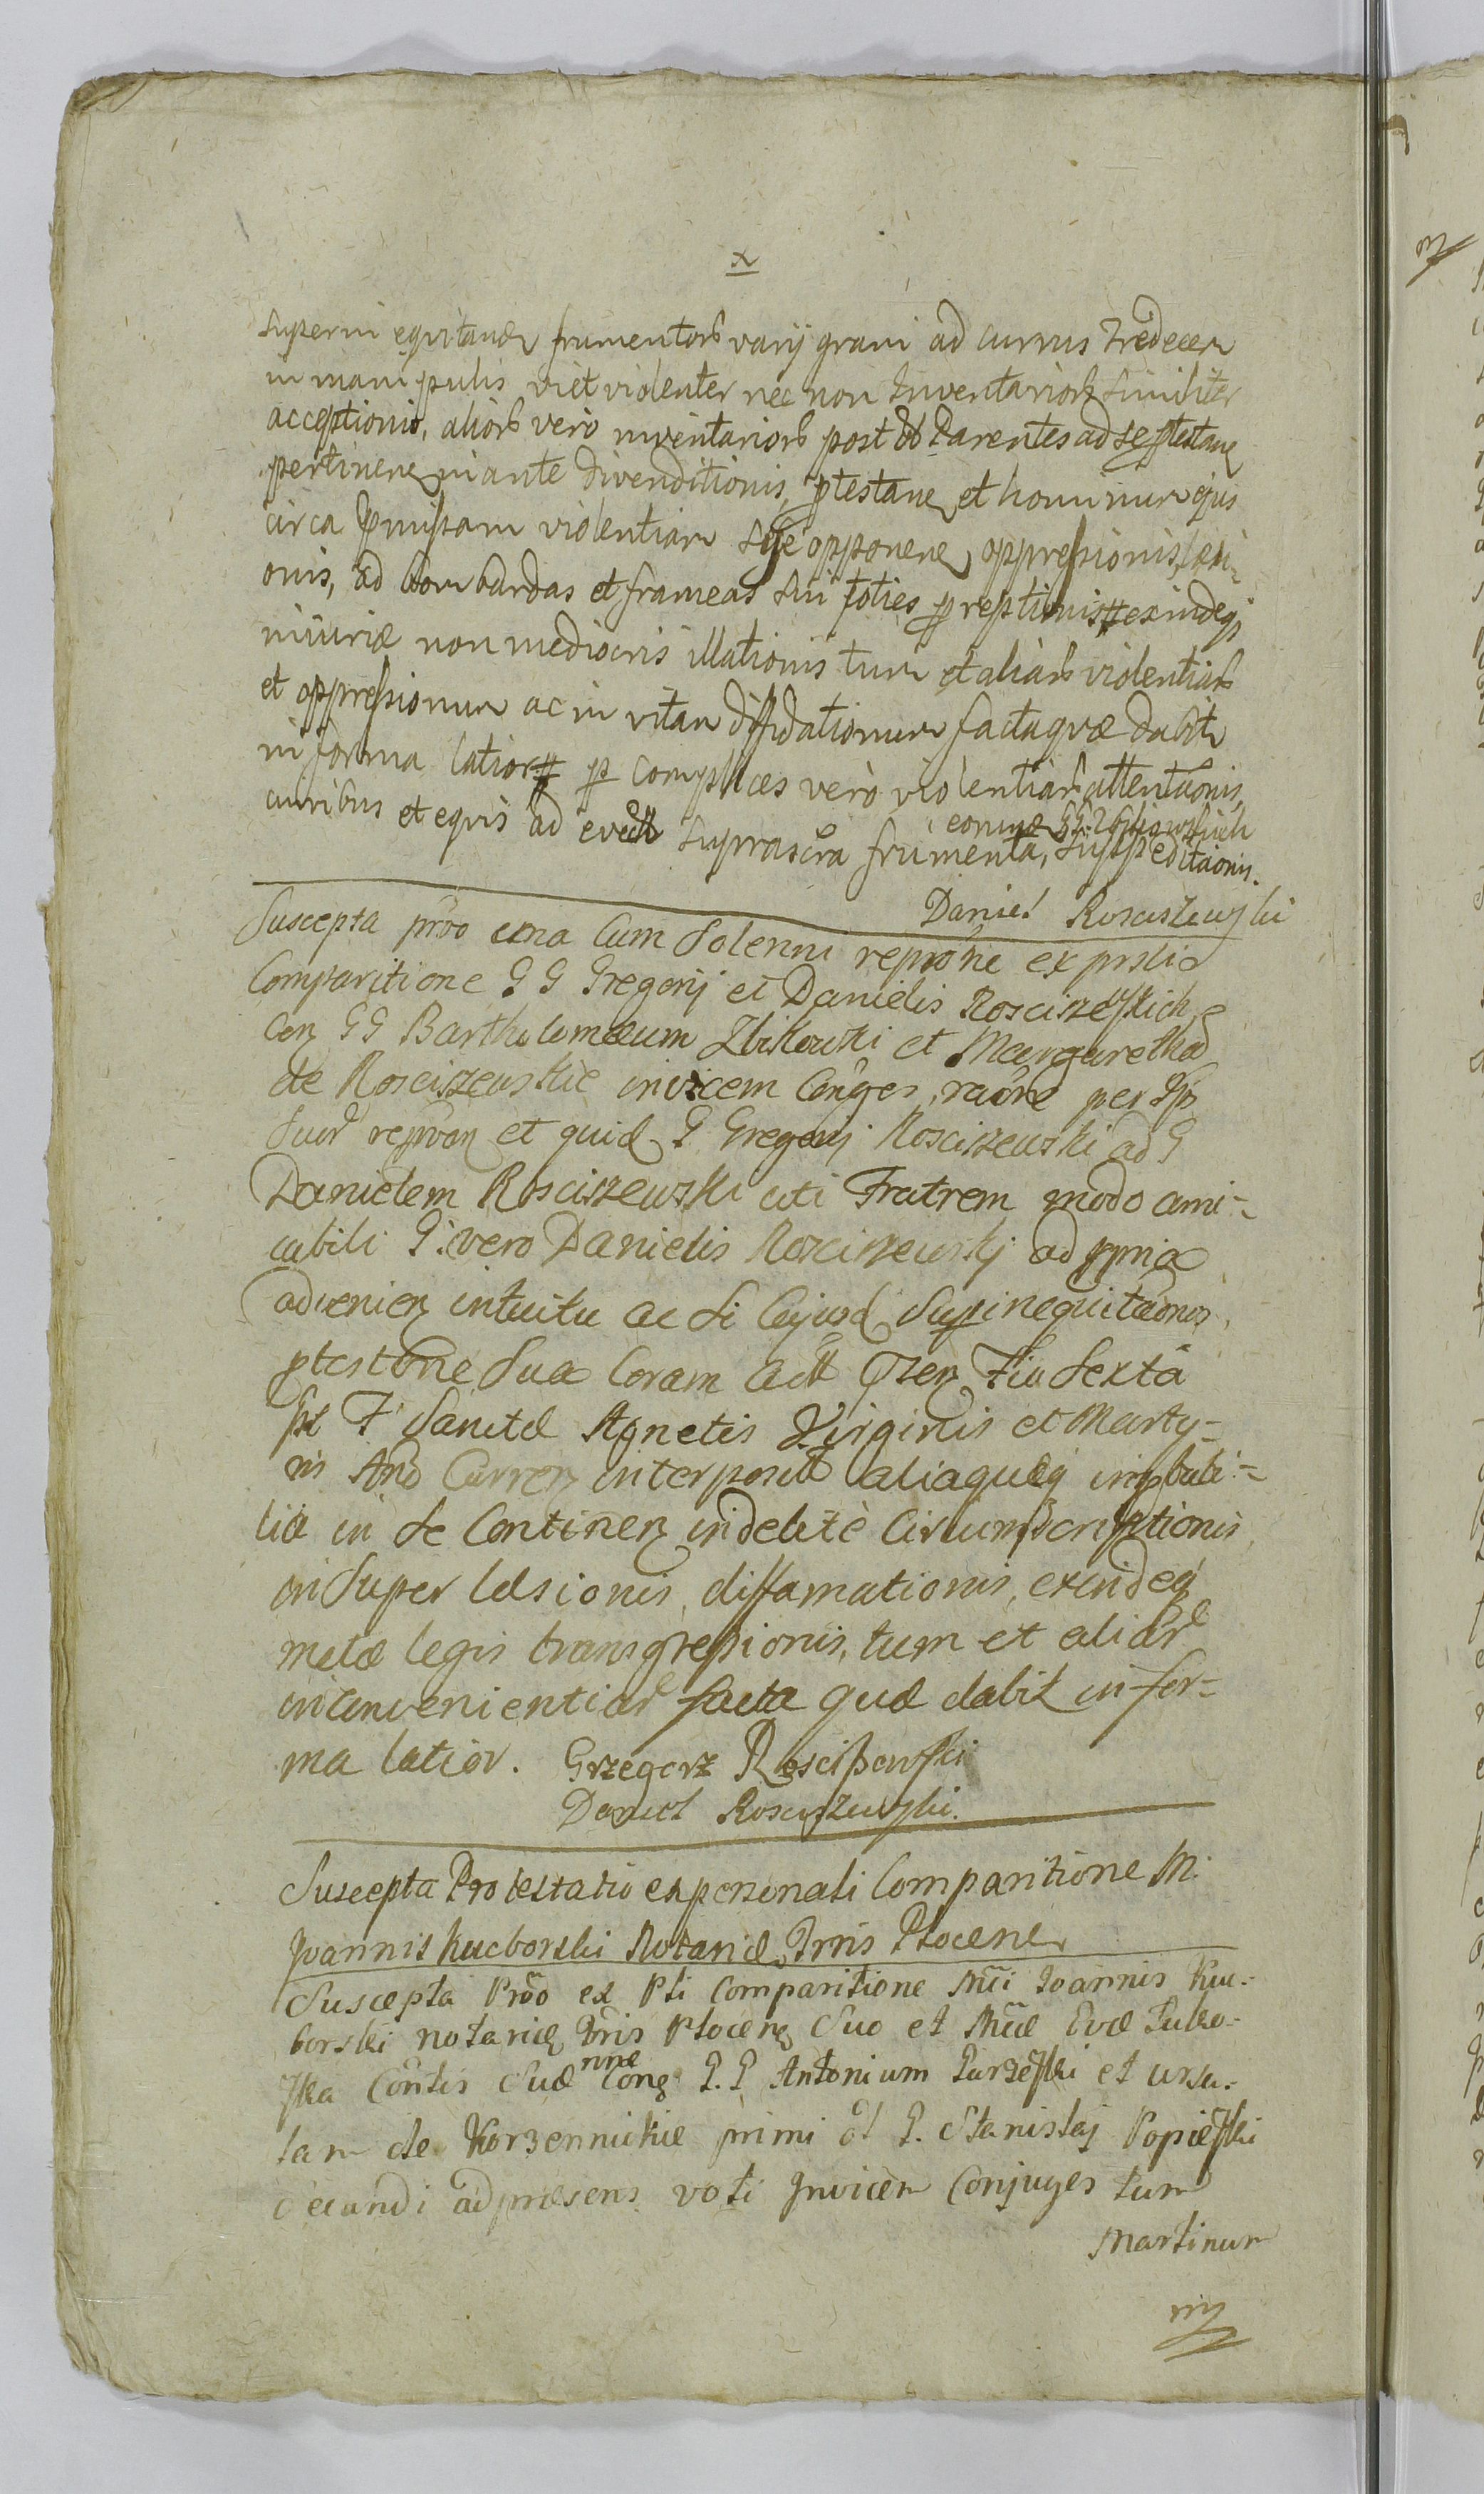 x
Superin equitandũ frumentorũ varij grani ad currus tredecem
in manipulis vi et violenter nec non Inventariorũ similiter
acceptionis, aliorũ vero inventariorũ post Parentes ad se ptestane
pertinene in ante divenditionis, ptestane et hominum ejus
circa pmissam violentiam se opponene, oppressionis, lesi-
onis, ad bombardas et frameas sui toties preptionis exindeqȝ
iniuriæ non mediocris illationis tum et aliarũ violentiarũ
et oppressionum ac in vitam diffidationum facta quæ dabit
in forma latiori p complices vero violentiarũ attentaonis,
eorum GG Zbikowskich
curribus et equis ad suprascra frumenta, suppeditaonis.
Daniel Rosciszewski
Suscepta prõo una Cum Solenni reprõne ex prsli
Comparitione G G Gregorij et Danielis Rosciszewskich
Con GG Bartholomæum Zbikowski et Margaretha
de Rosciszewskie invicem Conges, raõne per
Suã reprõn et quid G Gregorij Rosciszewski ad G
Danielem Rosciszewski uti Fratrem modo ami-
cabili G. vero Danielis Rosciszewskj ad pmia
advenien intuitu ac si Cujusd Superinequitaonis,
ptestõne Sua Coram Act Fia Sexta
pt F Sanctæ Agnetis Virginis et Marty-
ris Anõ Curren interposit aliaqueqȝ imputi-
lia in se Continen indebite Circumscriptionis,
in super læsionis, diffamationis, exindeqȝ
metæ legis transgressionis, tum et aliarũ
inconvenientiarũ facta quæ dabit in for-
ma latior. Grzegorz Roscißewski
Daniel Rosciszewski.
Suscepta Protestatio ex personali Comparitione M.
Joannis Kucborski Notarie Trris Plocene
Suscepta Prõo ex Pli Comparitione Mci Joannis Kuc-
borski notarie Trris Plocene Suo et Mcæ Evæ Sulko-
ska Contis Suæ nne Cong. G. G Antonium Garzeski et Ursu-
lam de Korzennickie primi et G. Stanislaj Popieski
secundi ad præsens voti Invicem Conjuges tum
Martinum